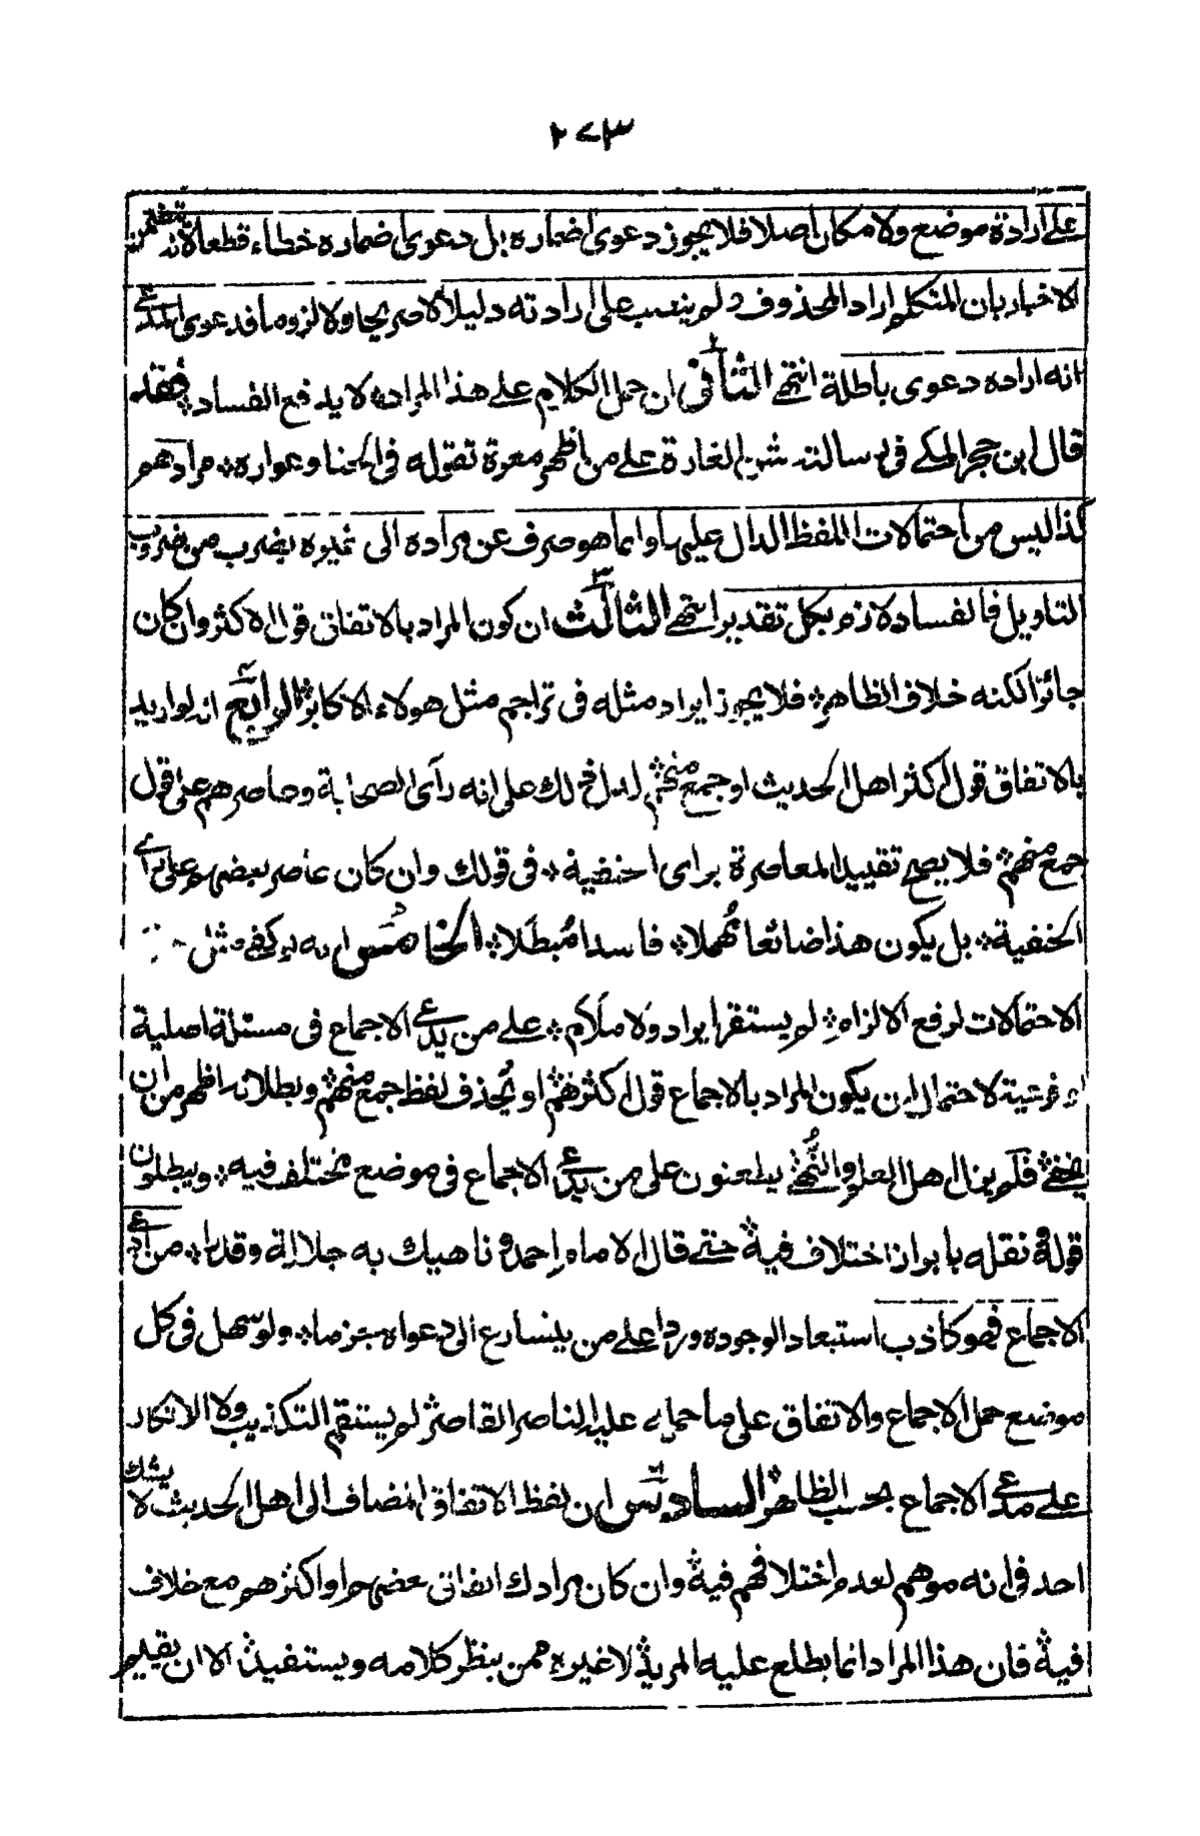 ٢٧٣
على ارادة موضع ولا مكان اصلا فلا يجوز دعوى اضماره بل دعوى اضماره خطاء قطعا لانه يتضمن
الاخبار بان المتكلم اراد المحذوف ولم ينصب على ارادته دليلا لا صريحا ولا لزوما فدعوى المدعى
انه اراده دعوى باطلة انتهى الثانى ان حمل الكلام على هذا المراد لا يدفع الفساد فقد
قال ابن حجر المكى فى رسالته شن الغارة على من اظهر معرة تقوله فى الحنا وعواره مرادهم
كذا ليس من احتمالات اللفظ الدال عليها وانما هو صرف عن مراده الى غيره بضرب من ضروب
التاويل فالفساد لازم بكل تقدير انتهى الثالث ان كون المراد بالاتفاق قول الاكثر وان كان
جائزا لكنه خلاف الظاهر فلا يجوز ايراد مثله فى تراجم مثل هولاء الاكابر الرابع انه لو اريد
بالاتفاق قول اكثر اهل الحديث او جمع منهم لدل ذلك على انه رأى الصحابة وعاصرهم على قول
جمع منهم فلا يصح تقييد المعاصرة براى الحنفية فى قولك وان كان عاصر بعضهم على رأى
الحنفية بل يكون هذا ضائعا مهملا فاسدا مبطلا الخامس انه لو كفى مثل
الاحتمالات لرفع الالزام لم يستقر ايراد ولا ملام على من يدعى الاجماع فى مسئلة اصلية
او فرعية لاحتمال ان يكون المراد بالاجماع قول اكثرهم او يحذف لفظ جمع منهم وبطلانه اظهر من ان
يخفى فلم يزل اهل العلم والنهى يطعنون على من يدعى الاجماع فى موضع مختلف فيه ويبطلون
قوله ونقله بابراز اختلاف فيه حتى قال الامام احمد وناهيك به جلالة وقدرا من ادعى
الاجماع فهو كاذب استبعادا لوجوده وردا على من يتسارع الى دعواه جزما ولو سهل فى كل
موضع حمل الاجماع والاتفاق على ما حمله عليه الناصر القاصر لم يستقم التكذيب ولا الانكار
على مدعى الاجماع بحسب الظاهر السادس ان لفظ الاتفاق المضاف الى اهل الحديث لا يشك
احد فى انه موهم لعدم اختلافهم فيه وان كان مرادك اتفاق بعضهم او اكثرهم مع خلاف
فيه فان هذا المراد انما يطلع عليه المريد لا غيره ممن ينظر كلامه ويستفيد الا ان يقيم